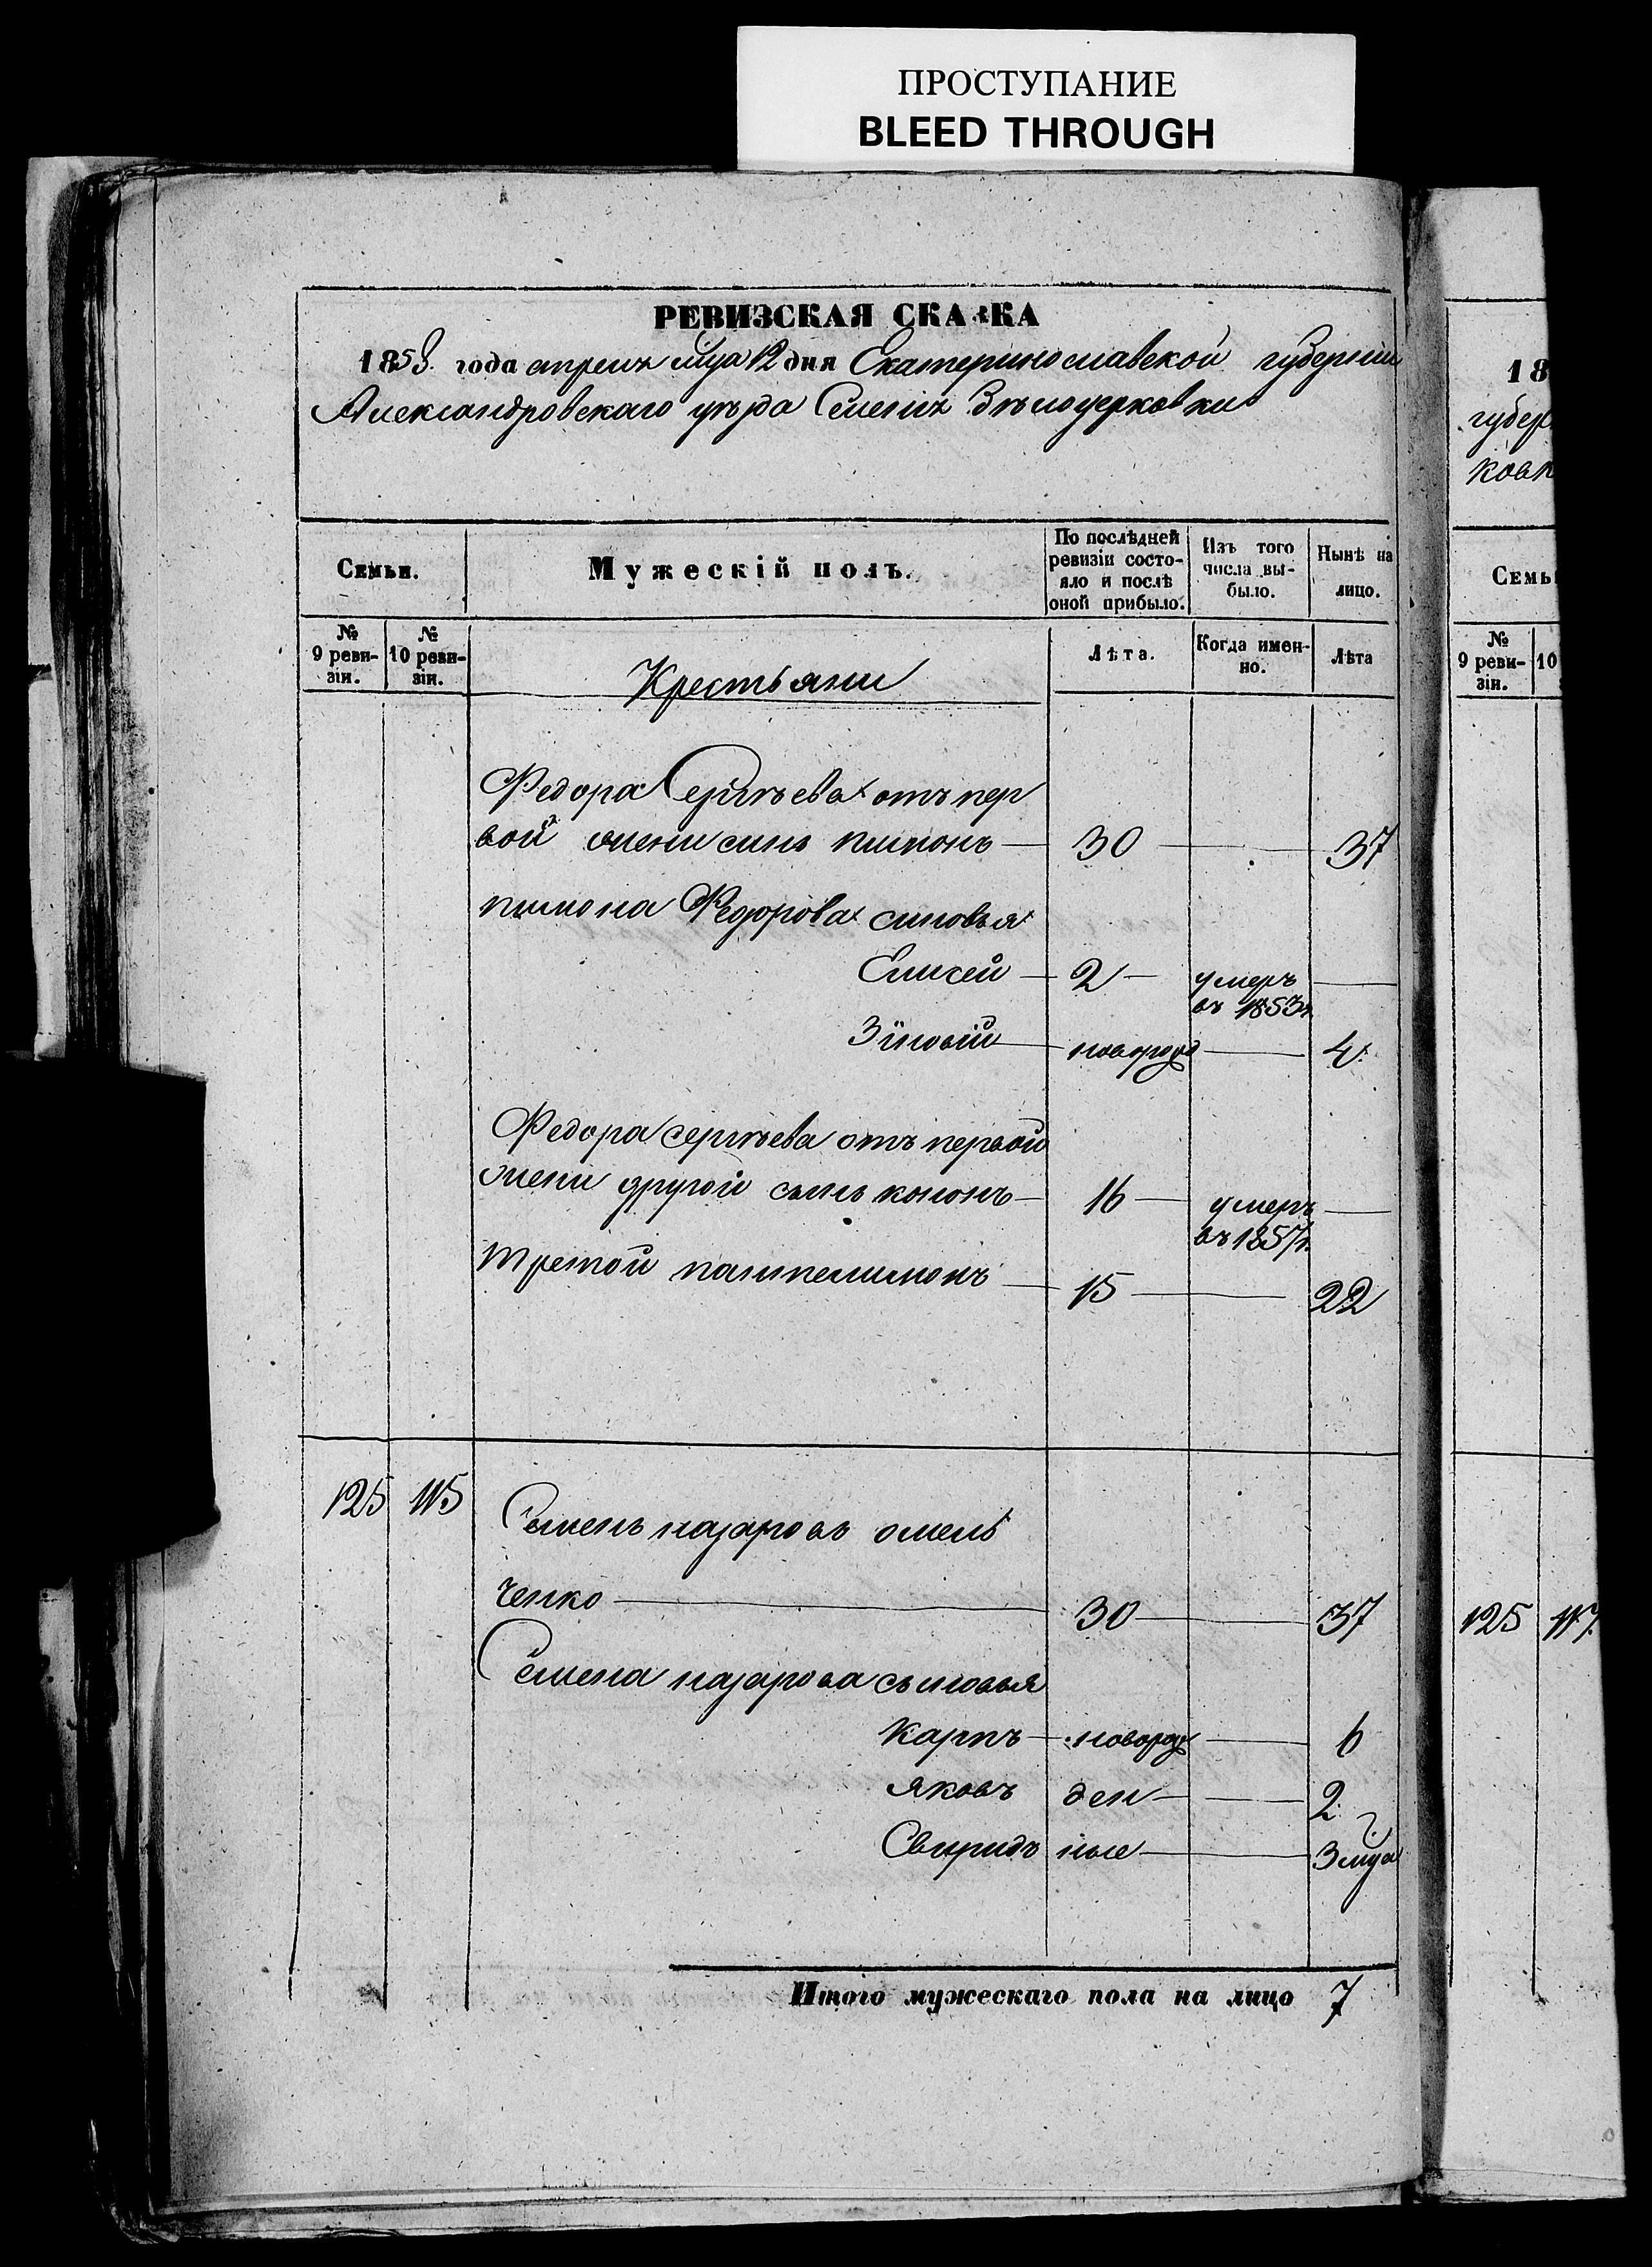 ПРОСТУПАНИЕ
BLEED THROUGH
РЕВИЗСКАЯ СКАЗКА
1858. года апреля мца 12 дня Екатеринославской губернии
Александровскаго уезда Селенія Белоцерковки
Семьи.
Мужескій полъ.
По послѣдней ревизіи состо-
яло и послѣ
оной прибыло.
Изъ того
числа вы-
было.
Нынѣ на
лицо.
№
9 реви-
зіи.
№
10 реви-
зіи.
Крестьяни
Лѣта.
Когда имен-
но.
Лѣта
Федора Сергѣева отъ пер
вой жени синъ пимонъ 30 37
пимона Федорова синовья
Елисей 2 умеръ
въ 1853г.
Зіновій новорожд 4.
Федора сергѣева отъ первой
жени другой сынъ кононъ 16 умеръ
въ 1857г.
третой пантелимонъ 15 22
125 115 Семенъ назаровъ омель
ченко 30 37
Семена назарова сыновья
Карпъ новорож 6
Яковъ ден 2
Свиридъ ные 3 мца
Итого мужескаго пола на лицо 7
18
губер
ковк
Семьи
№
9 реви-
зіи.
10
125 117.